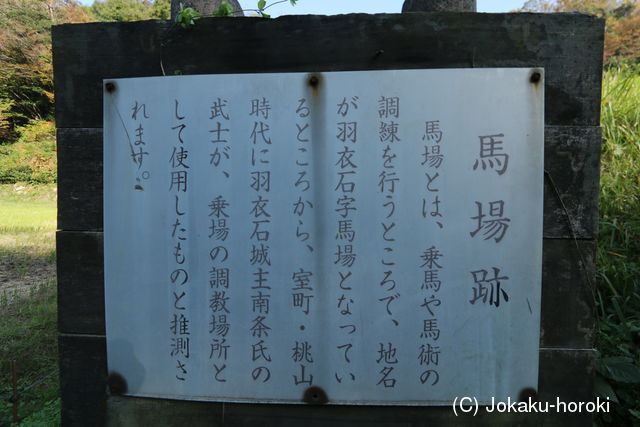 馬場跡
馬場とは、乗馬や馬術の
調練を行うところで、地名
が羽衣石字馬場となってい
るところから、室町・桃山
時代に羽衣石城主南条氏の
武士が、乗場の調教場所と
して使用したものと推測さ
れます。
(C) Jokaku-horoki